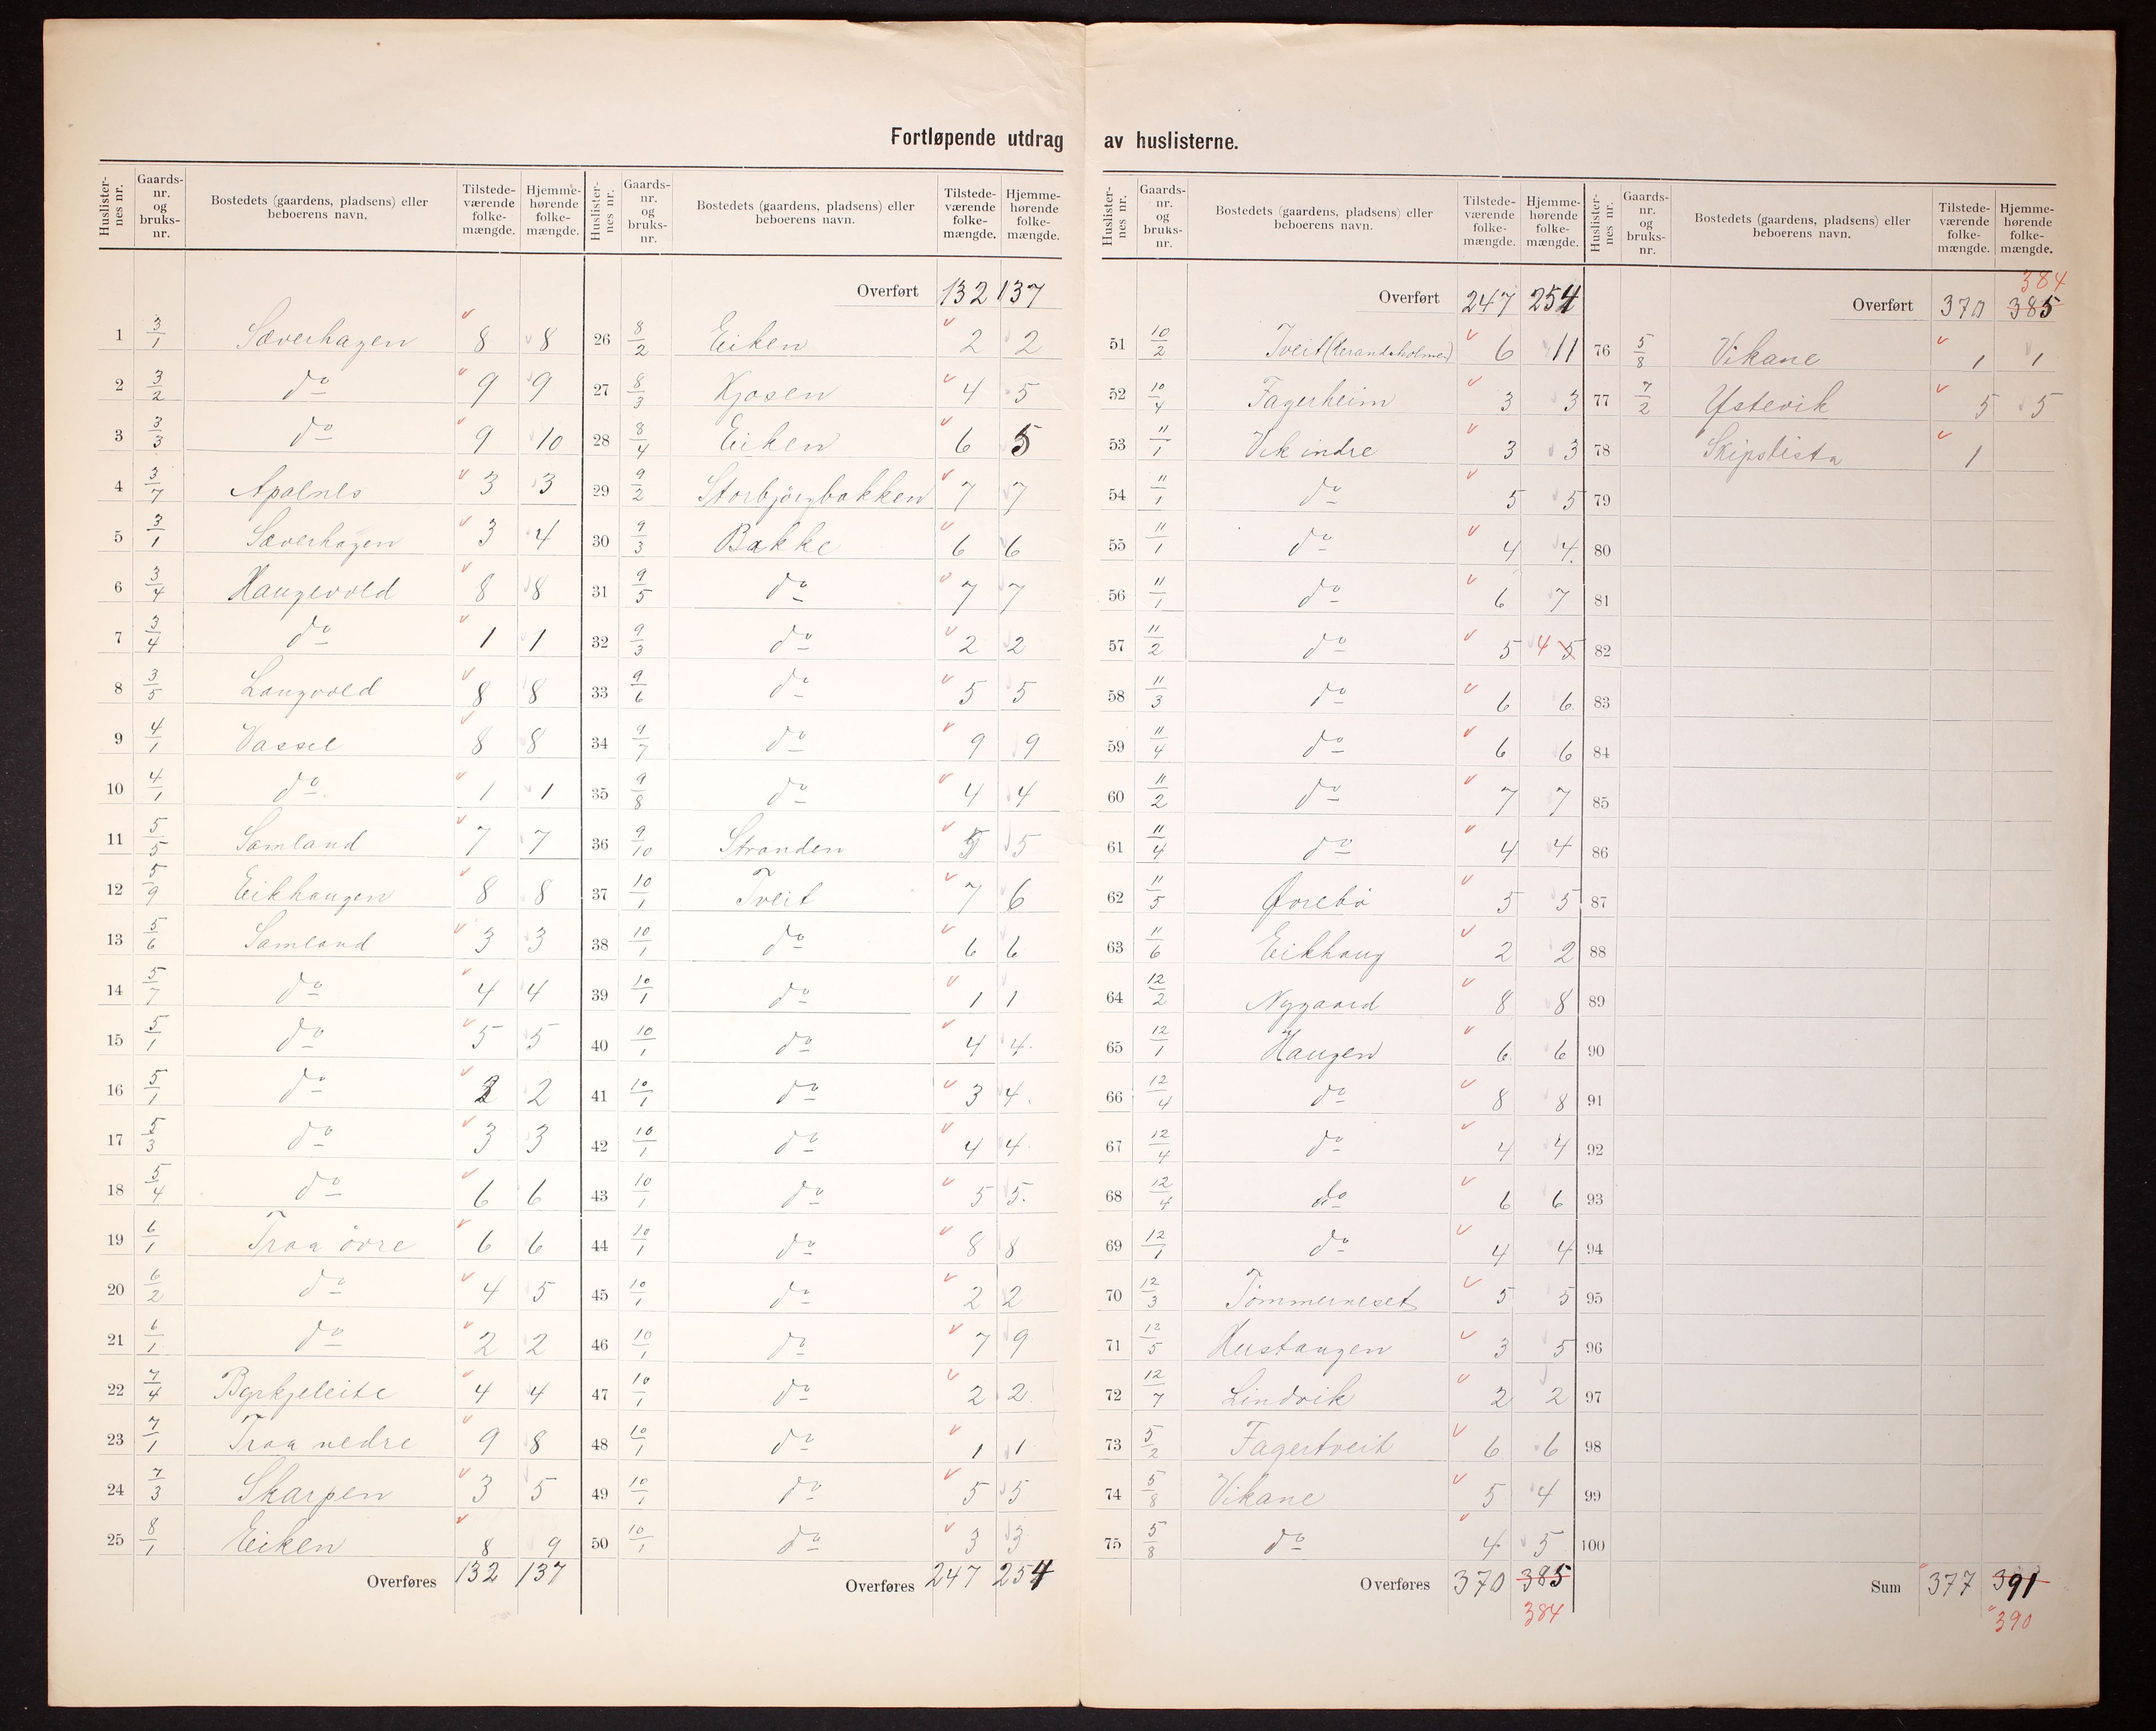 Fortløpende utdrag av huslisterne.
Huslister-nes nr. | Gaards-nr. og bruks-nr. | Bostedets (gaardens, pladsens) eller beboerens navn. | Tilstede-værende folke-mængde. | Hjemme-hørende folke-mængde.
1 3/1 Sæverhagen 8 8
2 3/2 do 9 9
3 3/3 do 9 10
4 3/7 Apalnes 3 3
5 3/1 Sæverhagen 3 4
6 3/4 Haugevold 8 8
7 3/4 do 1 1
8 3/5 Langvold 8 8
9 4/1 Vassel 8 8
10 4/1 do. 1 1
11 5/5 Samland 7 7
12 5/9 Eikhaugen 8 8
13 5/6 Samland 3 3
14 5/7 do 4 4
15 5/1 do 5 5
16 5/1 do 2 2
17 5/3 do 3 3
18 5/4 do 6 6
19 6/1 Traa övre 6 6
20 6/2 do 4 5
21 6/1 do 2 2
22 7/4 Byrkjeleite 4 4
23 7/1 Traa nedre 9 8
24 7/3 Skarpen 3 5
25 8/1 Eiken 8 9
Overføres 132 137
Huslister-nes nr. | Gaards-nr. og bruks-nr. | Bostedets (gaardens, pladsens) eller beboerens navn. | Tilstede-værende folke-mængde. | Hjemme-hørende folke-mængde.
Overført 132 137
26 8/2 Eiken 2 2
27 8/3 Kjosen 4 5
28 8/4 Eiken 6 5
29 9/2 Storbjørgbakken 7 7
30 9/3 Bakke 6 6
31 9/5 do 7 7
32 9/3 do 2 2
33 9/6 do 5 5
34 9/7 do 9 9
35 9/8 do 4 4
36 9/10 Stranden 5 5
37 10/1 Tveit 7 6
38 10/1 do 6 6
39 10/1 do 1 1
40 10/1 do 4 4.
41 10/1 do 3 4.
42 10/1 do 4 4.
43 10/1 do 5 5.
44 10/1 do 8 8
45 10/1 do 2 2
46 10/1 do 7 9
47 10/1 do 2 2.
48 10/1 do 1 1
49 10/1 do 5 5
50 10/1 do 3 3
Overføres 247 254
Huslister-nes nr. | Gaards-nr. og bruks-nr. | Bostedets (gaardens, pladsens) eller beboerens navn. | Tilstede-værende folke-mængde. | Hjemme-hørende folke-mængde.
Overført 247 254
51 10/2 Tveit 6 11
52 10/4 Fagerheim 3 3
53 11/1 Vik indre 3 3
54 11/1 do 5 5
55 11/1 do 4 4.
56 11/1 do 6 7
57 11/2 do 5 4 5
58 11/3 do 6 6
59 11/4 do 6 6
60 11/2 do 7 7
61 11/4 do 4 4
62 11/5 Øvrebö 5 5
63 11/6 Eikhaug 2 2
64 12/2 Nygaard 8 8
65 12/1 Haugen 6 6
66 12/4 do 8 8
67 12/4 do 4 4
68 12/4 do 6 6
69 12/1 do 4 4
70 12/3 Tömmerneset 5 5
71 12/5 Hustangen 3 5
72 12/7 Lindvik 2 2
73 5/2 Fagertveit 6 6
74 5/8 Vikane 5 4
75 5/8 do 4 5
Overføres 370 385
384
Huslister-nes nr. | Gaards-nr. og bruks-nr. | Bostedets (gaardens, pladsens) eller beboerens navn. | Tilstede-værende folke-mængde. | Hjemme-hørende folke-mængde.
384
Overført 370 385
76 5/8 Vikane 1 1
77 7/2 Ystevik 5 5
78 Skipslista 1
79
80
81
82
83
84
85
86
87
88
89
90
91
92
93
94
95
96
97
98
99
100
Sum 377 391
390